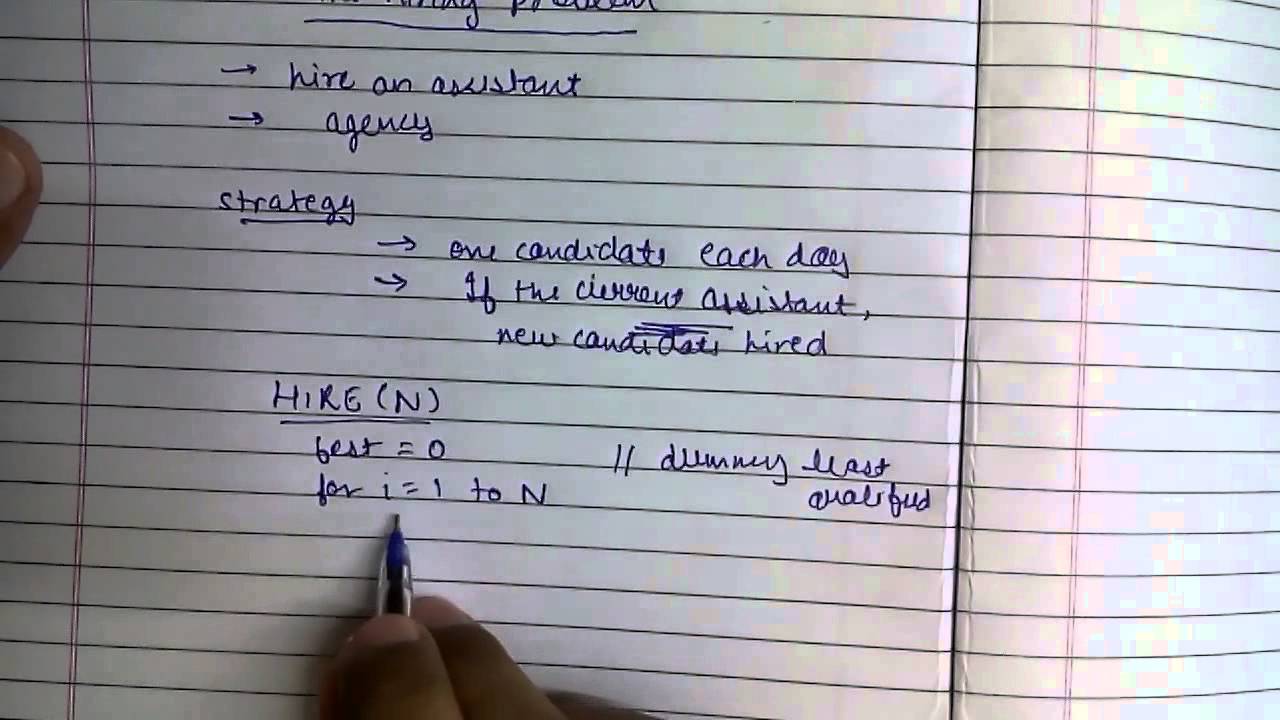 Hiring problem
→ hire an assistant
→ agency
strategy
→ one candidate each day
→ If the current assistant,
new candidate hired
HIRE (N)
best = 0 // dummy least
qualified
for i = 1 to N